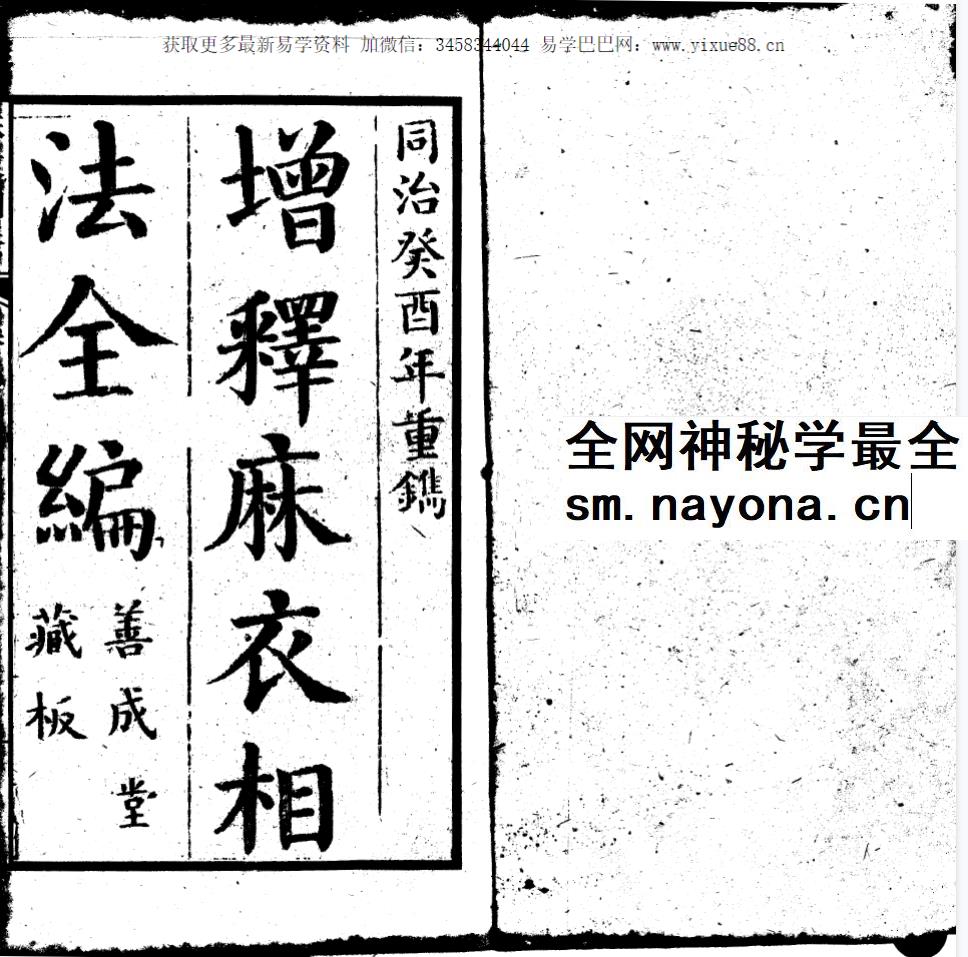 获取更多最新易学资料 加微信：3458344044 易学巴巴网：www.yixue88.cn
同治癸酉年重鐫
增釋麻衣相
法全編
善成堂
藏板
全网神秘学最全
sm.nayona.cn